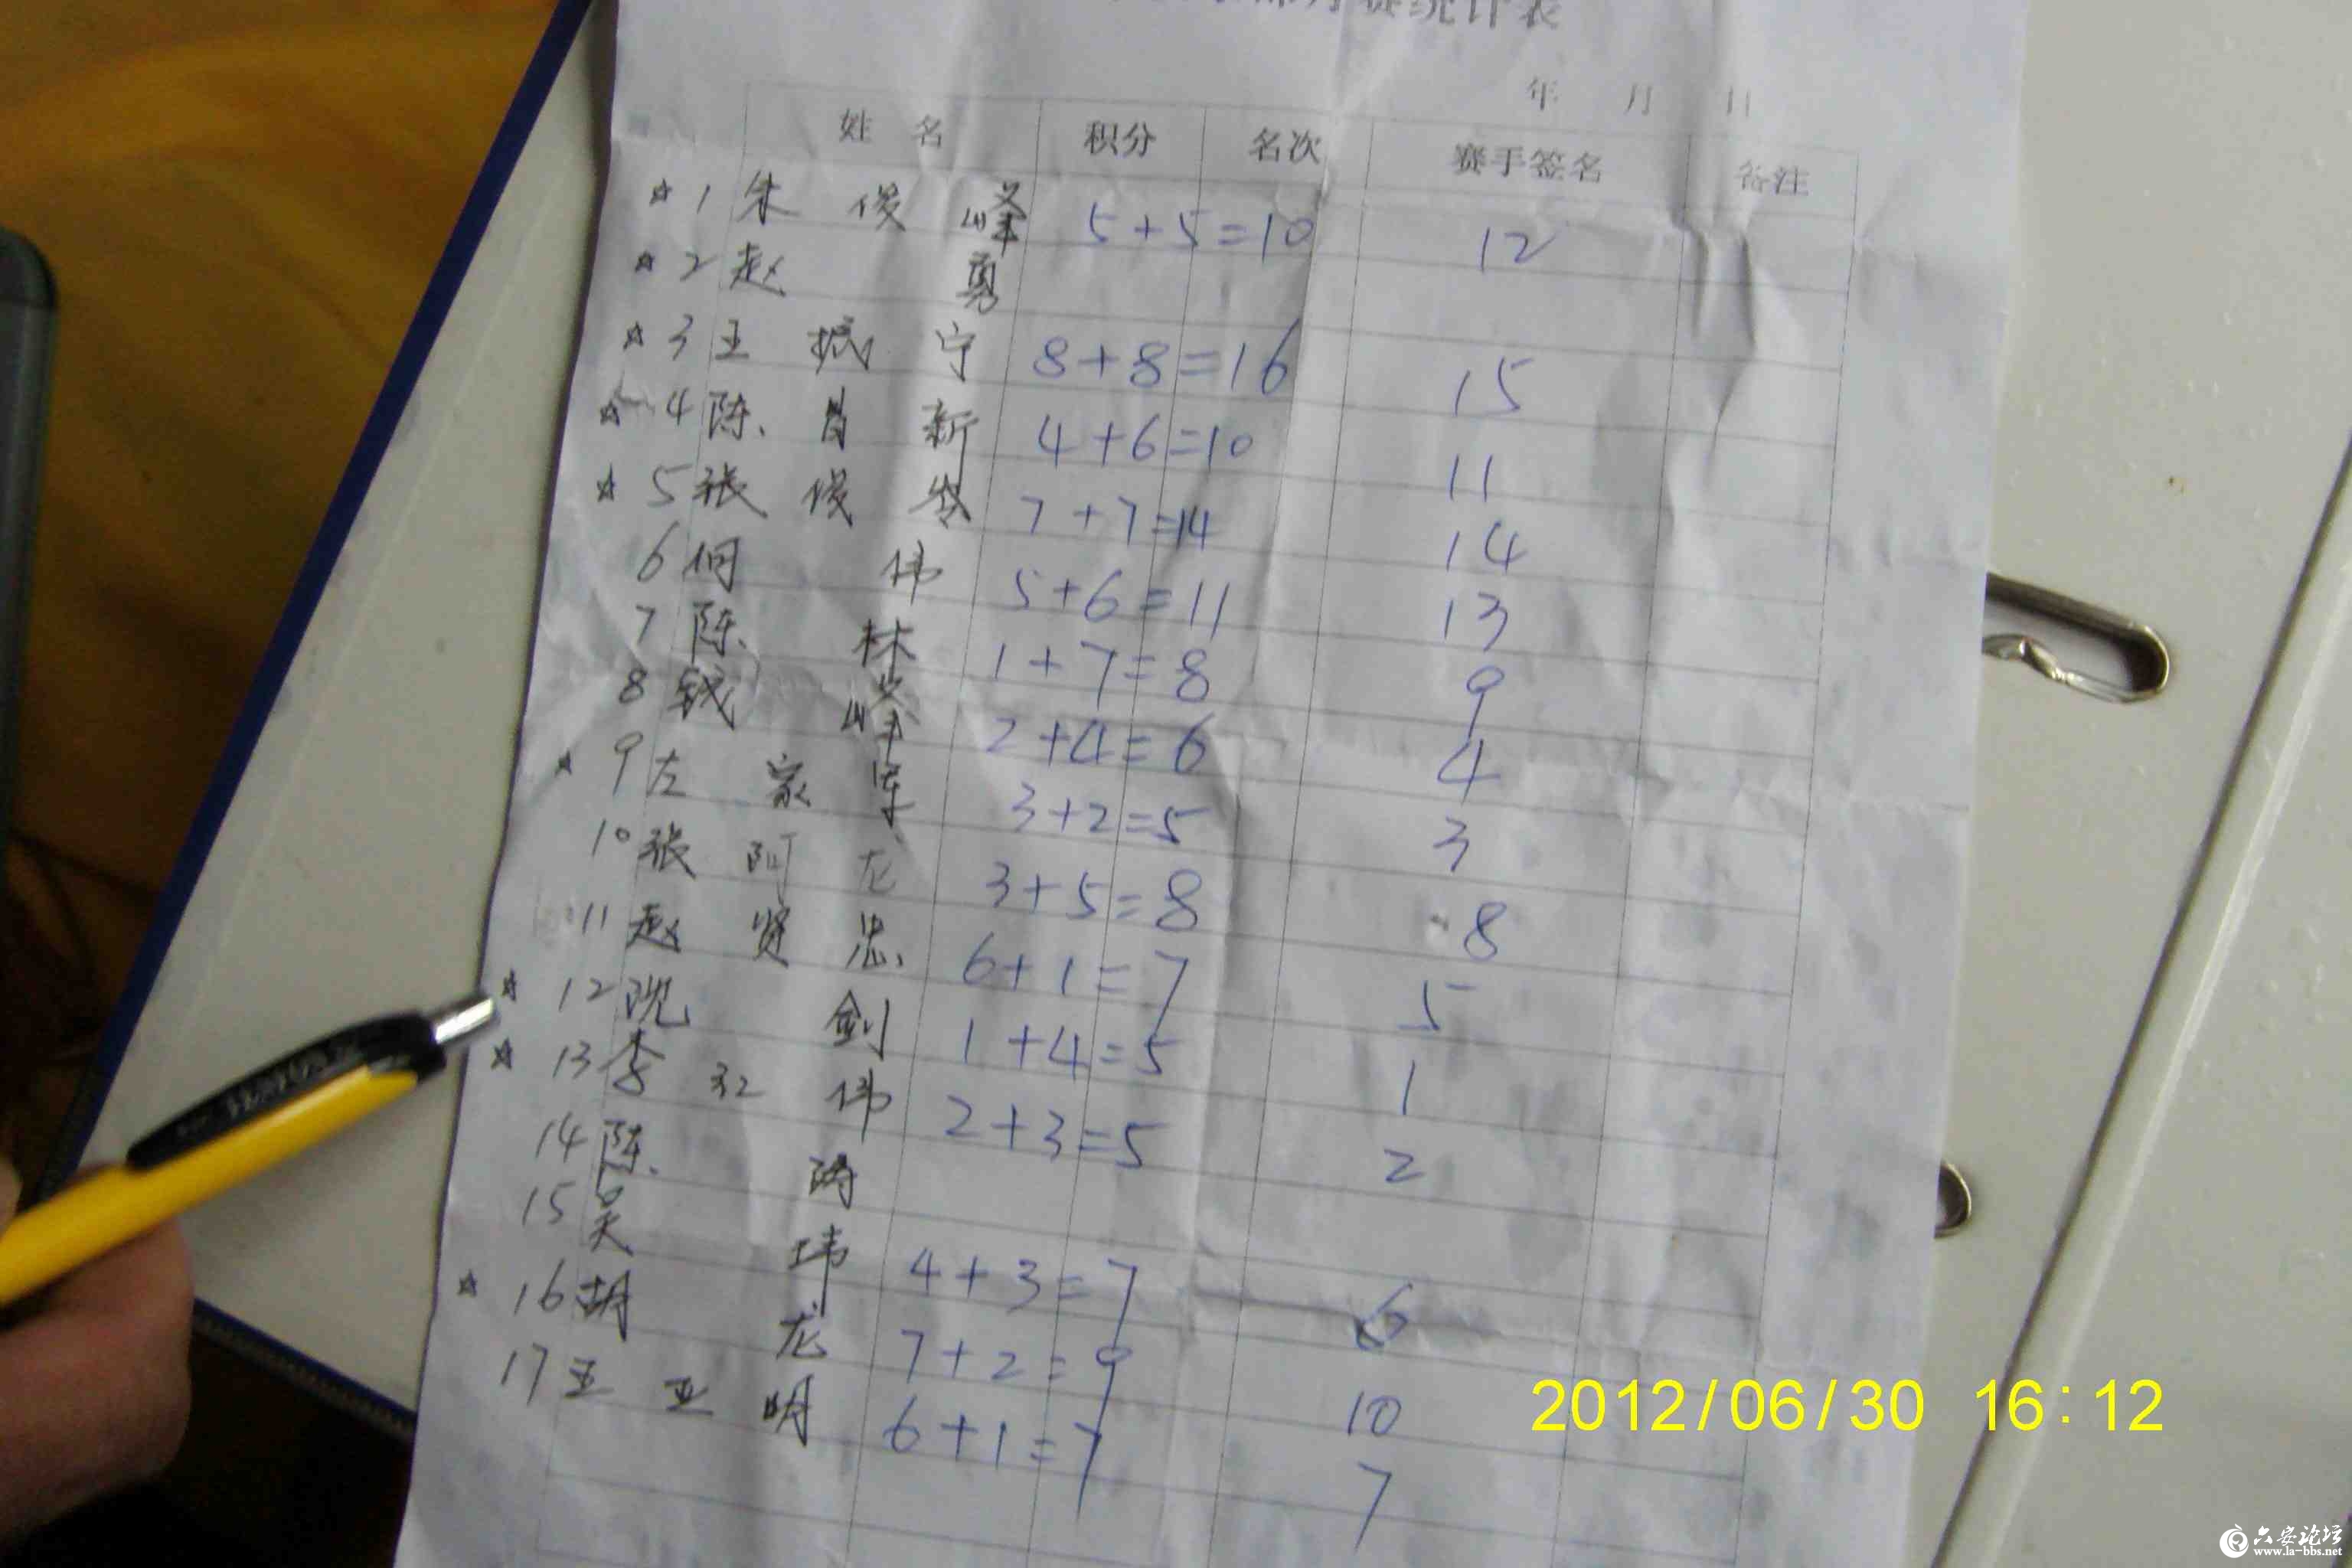 月赛统计表
年 月 日
姓名 积分 名次 赛手签名 备注
☆ 1 朱俊峰 5+5=10 12
☆ 2 赵勇
☆ 3 王振宁 8+8=16 15
☆ 4 陈昌新 4+6=10 11
☆ 5 张俊岑 7+7=14 14
6 何伟 5+6=11 13
7 陈林 1+7=8 9
8 钱峰 2+4=6 4
☆ 9 左家军 3+2=5 3
10 张阿龙 3+5=8 8
11 赵贤忠 6+1=7 5
☆ 12 沈剑 1+4=5 1
☆ 13 李红伟 2+3=5 2
14 陈涛
15 吴玮 4+3=7 6
☆ 16 胡龙 7+2=9 10
17 王亚明 6+1=7 7
2012/06/30 16:12
六安论坛
www.la-bbs.net